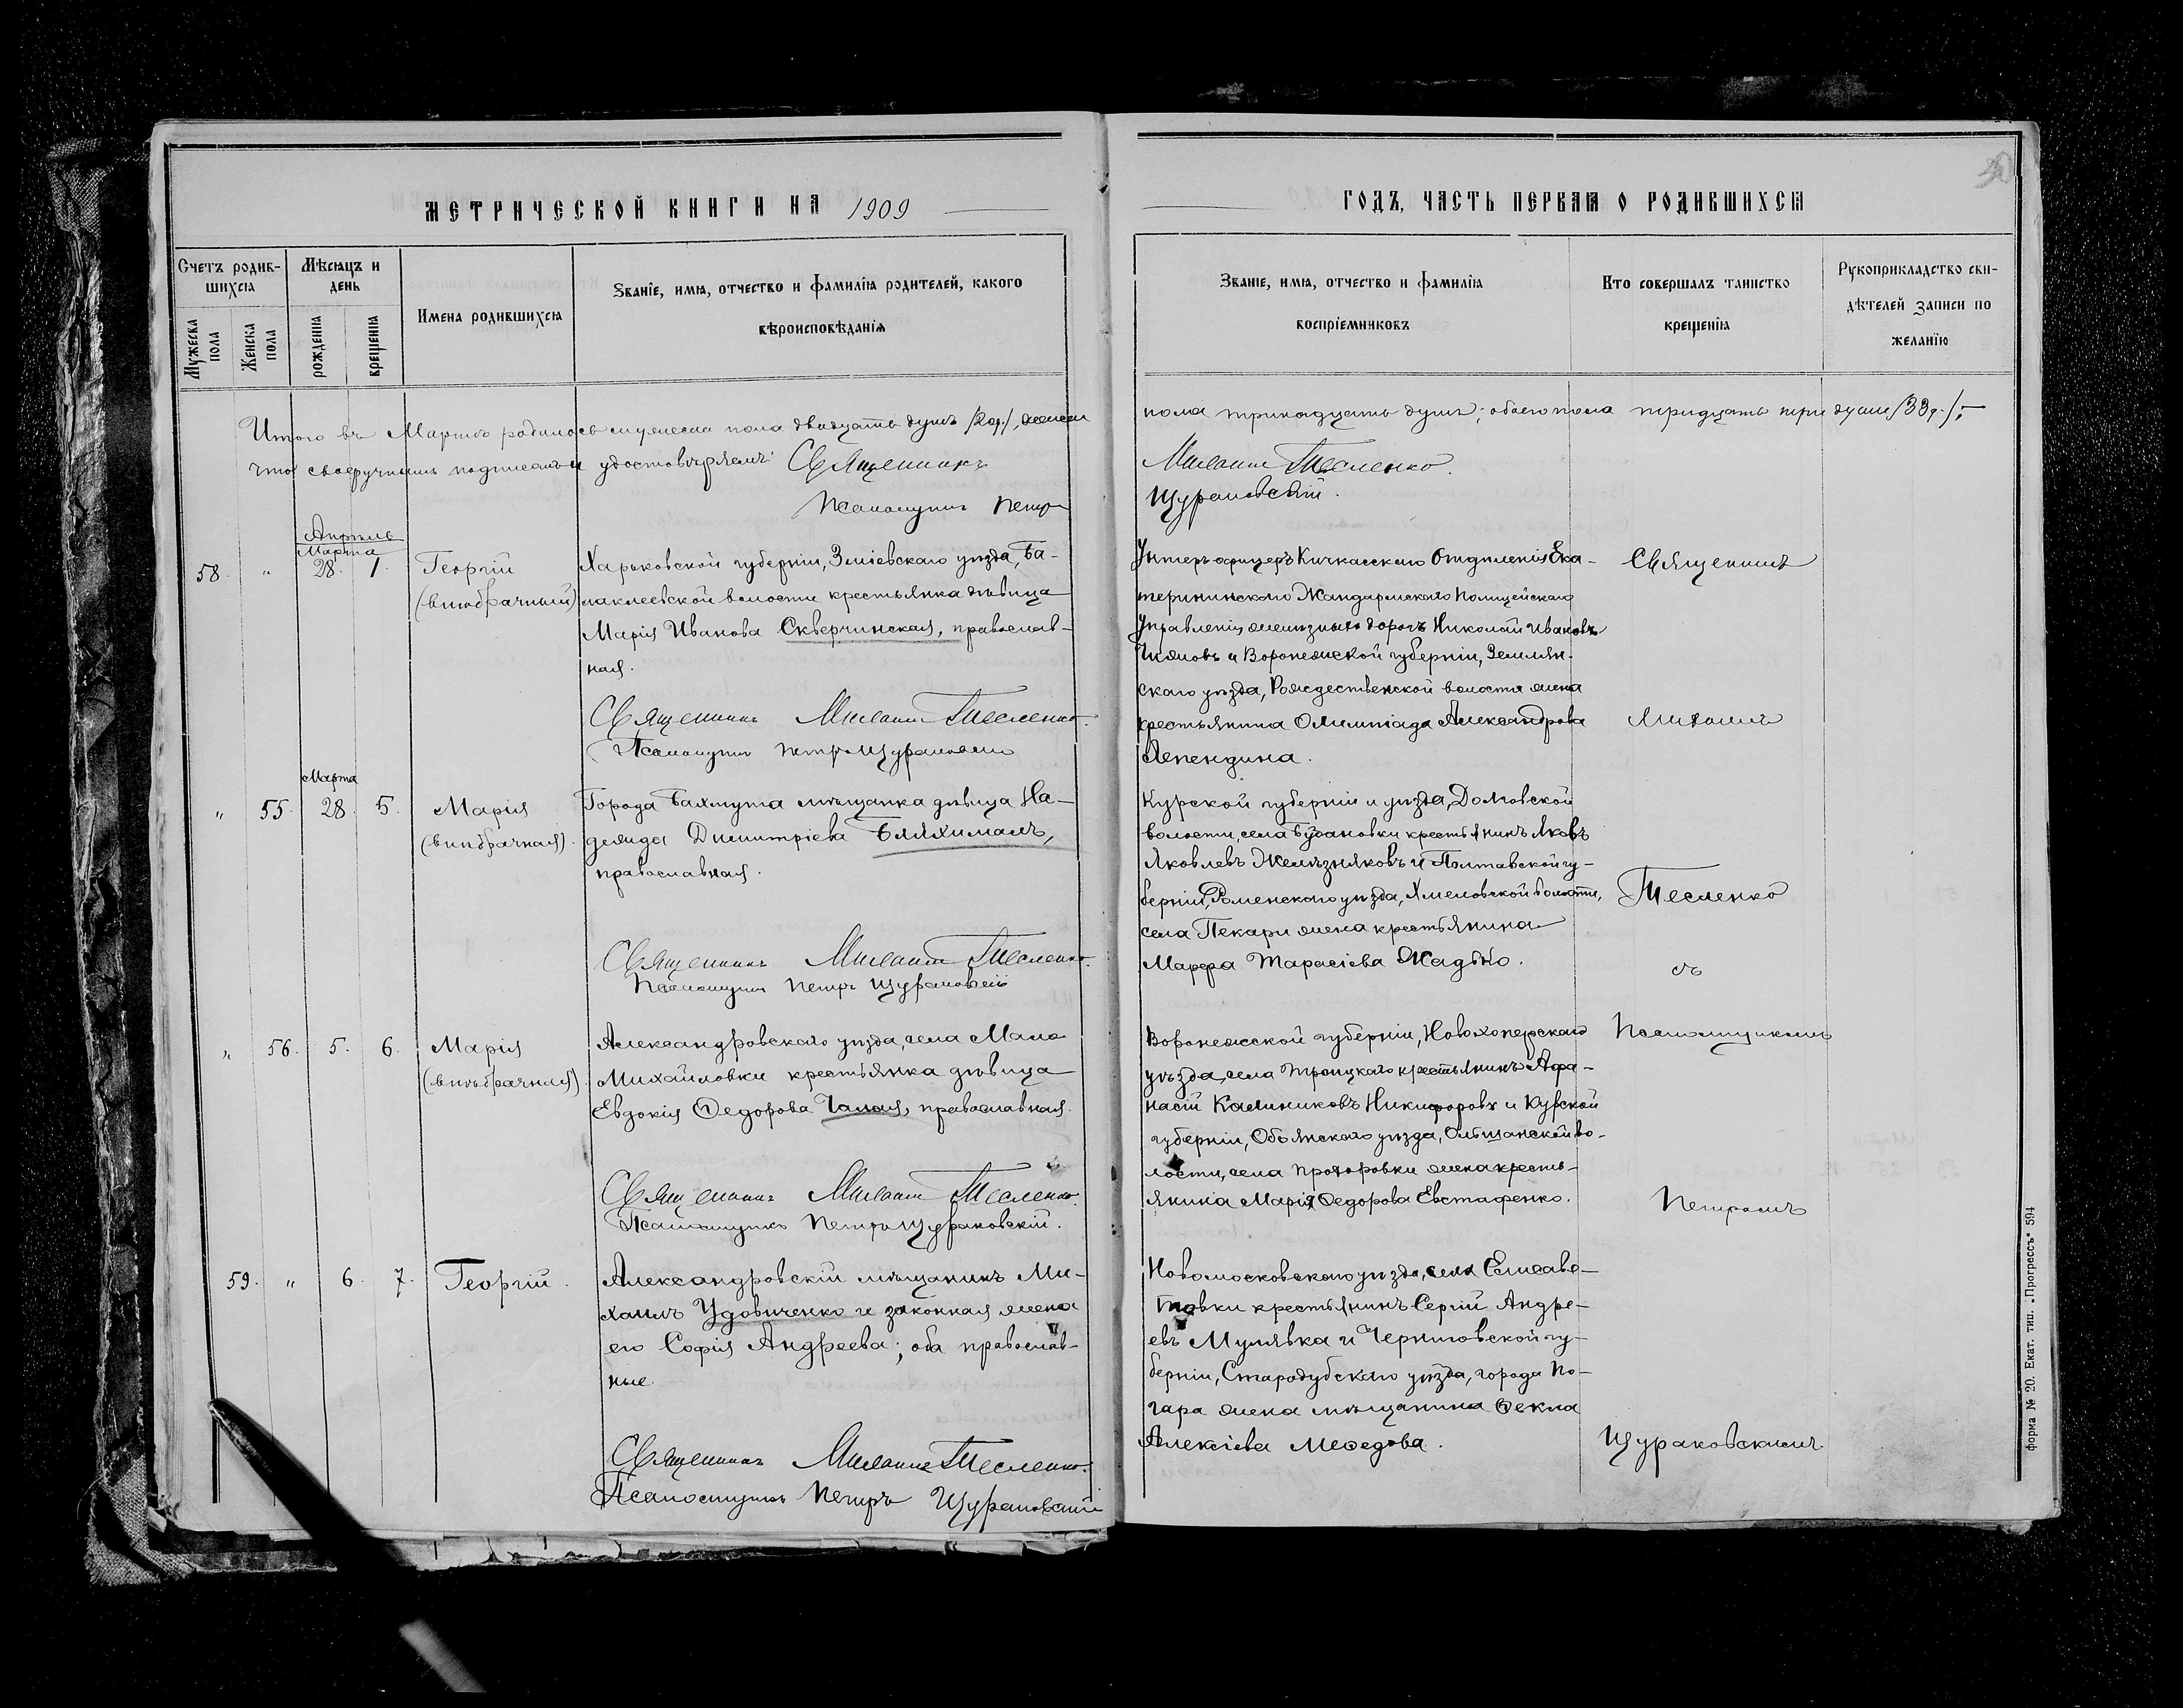 МЕТРИЧЕСКОЙ КНИГИ НА 1909
Счетъ родив-
шихся
Мужеска
пола
Женска
пола
Мѣсяцъ и
день
рожденія
крещенія
Имена родившихся
Званіе, имя, отчество и фамилія родителей, какого
вѣроисповѣданія
Итого въ Мартѣ родилось мужеска пола двадцать душъ /20 д./, женск
что своеручнымъ подписомъ и удостовѣряемъ: Священникъ
Псаломщикъ Петръ
Апрѣль
Марта
58. " 28. 1. Георгій
(внѣбрачный)
Харьковской губерніи, Зміевскаго уѣзда, Ба-
лаклеевской волости крестьянка дѣвица
Марія Иванова Скверчинская, православ-
ная.
Священникъ Михаилъ Тесленко.
Псаломщикъ Петръ Щураковскій
Марта
" 55. 28. 5. Марія
(внѣбрачная).
Города Бахмута мѣщанка дѣвица На-
дежда Димитріева
православная.
Священникъ Михаилъ Тесленко.
Псаломщикъ Петръ Щураковскій
" 56. 5. 6. Марія
(внѣбрачная).
Александровскаго уѣзда, села Мало
Михайловки крестьянка дѣвица
Евдокія Ѳедорова Галая, православная.
Священникъ Михаилъ Тесленко.
Псаломщикъ Петръ Щураковскій.
59. " 6. 7. Георгій.
Александровскій мѣщанинъ Ми-
хаилъ Удовиченко и законная жена
его Софія Андреева; оба православ-
ные.
Священникъ Михаилъ Тесленко.
Псаломщикъ Петръ Щураковскій
30
ГОДЪ, ЧАСТЬ ПЕРВАЯ О РОДИВШИХСЯ
Званіе, имя, отчество и фамилія
воспріемниковъ
Кто совершалъ таинство
крещенія
Рукоприкладство сви-
дѣтелей записи по
желанію
пола тринадцать душъ; обоего пола тридцать три души /33 д./,–
Михаилъ Тесленко.
Щураковскій.
Унтеръ-офицеръ Кичкасскаго Отдѣленія Ека-
терининскаго Жандармскаго Полицейскаго
Управленія желѣзныхъ дорогъ Николай Ивановъ
и Воронежской губерніи, Землян-
скаго уѣзда, Рождественской волости жена
крестьянина Олимпіада Александрова
Лепендина.
Курской губерніи и уѣзда, Долговской
волости, села Будановки крестьянинъ Яковъ
Яковлевъ Желѣзняковъ и Полтавской гу-
берніи, Роменскаго уѣзда, Хмеловской волости,
села Пекари жена крестьянина
Марѳа Тарасіева Жадько.
Воронежской губерніи, Новохоперскаго
уѣзда, села Троицкаго крестьянинъ Аѳа-
насій Калиниковъ Никифоровъ и Курской
губерніи, Обоянскаго уѣзда, Ольшанской во-
лости, села Прохоровки жена кресть-
янина Марія Ѳедорова Евстафенко.
Новомосковскаго уѣзда, села Елисаве-
товки крестьянинъ Сергій Андре-
евъ Мулявка и Черниговской гу-
берніи, Стародубскаго уѣзда, города По-
гара жена мѣщанина Ѳекла
Алексіева Меѳедова.
Священникъ
Михаилъ
Тесленко
съ
Псаломщикомъ
Петромъ
Щураковскимъ
форма № 20. Екат. тип. „Прогрессъ“ 594